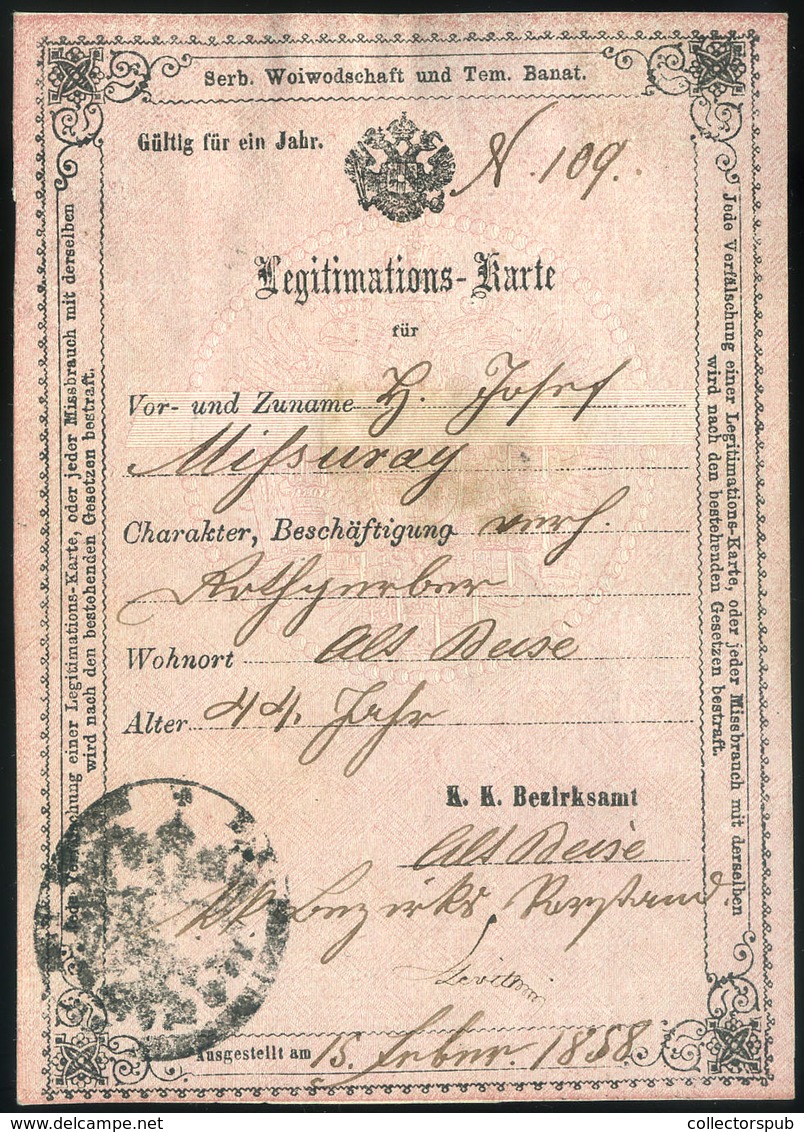 Serb. Woiwodschaft und Tem. Banat.
Gültig für ein Jahr.
N. 109.
Legitimations-Karte
für
Vor- und Zuname H. Josef
Missuray
Charakter, Beschäftigung verh.
Rothgerber
Wohnort Alt Becse
Alter 44. Jahr
K. K. Bezirksamt
Alt Becse
KK Bezirks Vorstand.
Ausgestellt am 15. Feber. 1858
Jede Verfälschung einer Legitimations-Karte, oder jeder Missbrauch mit derselben
wird nach den bestehenden Gesetzen bestraft.
Jede Verfälschung einer Legitimations-Karte, oder jeder Missbrauch mit derselben
wird nach den bestehenden Gesetzen bestraft.
collectorspub